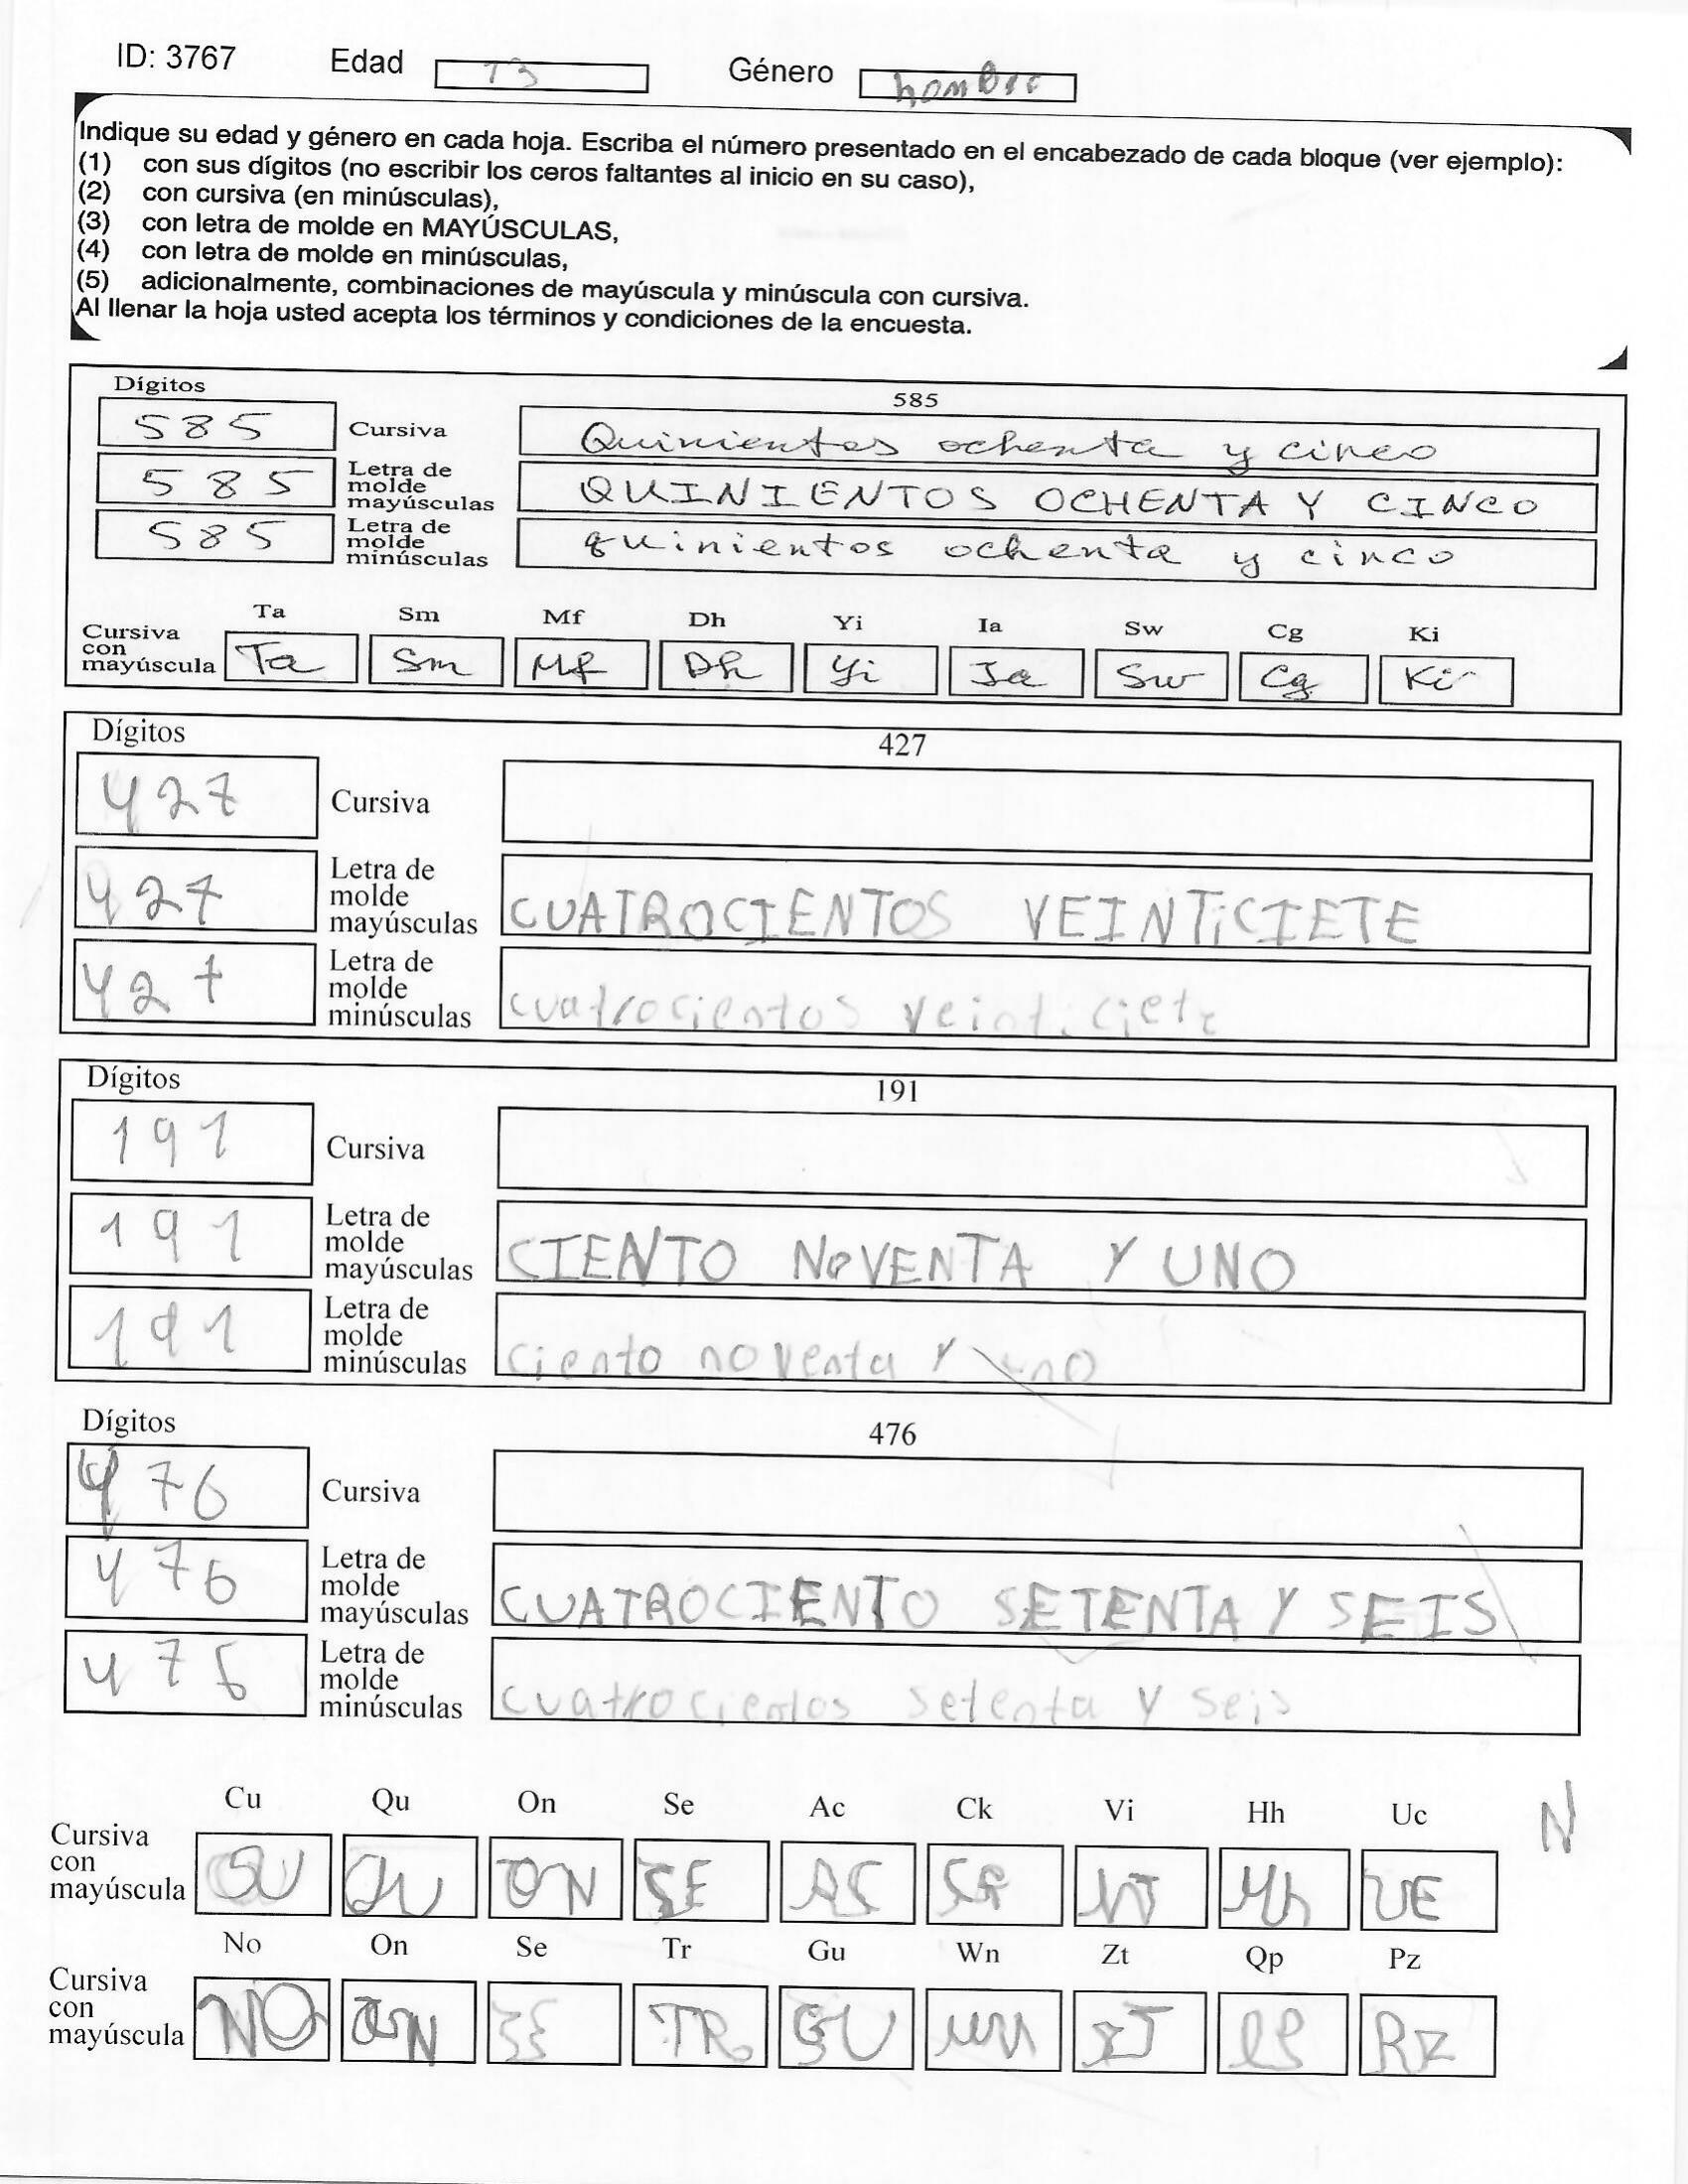 ID: 3767 Edad 13 Género hombre
Indique su edad y género en cada hoja. Escriba el número presentado en el encabezado de cada bloque (ver ejemplo):
(1) con sus dígitos (no escribir los ceros faltantes al inicio en su caso),
(2) con cursiva (en minúsculas),
(3) con letra de molde en MAYÚSCULAS,
(4) con letra de molde en minúsculas,
(5) adicionalmente, combinaciones de mayúscula y minúscula con cursiva.
Al llenar la hoja usted acepta los términos y condiciones de la encuesta.
Dígitos 585
585 Cursiva Quinientos ochenta y cinco
585 Letra de molde mayúsculas QUINIENTOS OCHENTA Y CINCO
585 Letra de molde minúsculas quinientos ochenta y cinco
Ta Sm Mf Dh Yi Ia Sw Cg Ki
Cursiva con mayúscula Ta Sm Mf Dh Yi Ia Sw Cg Ki
Dígitos 427
427 Cursiva
427 Letra de molde mayúsculas CUATROCIENTOS VEINTiCIETE
427 Letra de molde minúsculas cuatrocientos veinticiete
Dígitos 191
191 Cursiva
191 Letra de molde mayúsculas CIENTO NOVENTA Y UNO
191 Letra de molde minúsculas ciento noventa y uno
Dígitos 476
476 Cursiva
476 Letra de molde mayúsculas CUATROCIENTO SETENTA Y SEIS
476 Letra de molde minúsculas cuatrocientos setenta y seis
Cu Qu On Se Ac Ck Vi Hh Uc N
Cursiva con mayúscula SU QU ON SE AS VI Hh UE
No On Se Tr Gu Wn Zt Qp Pz
Cursiva con mayúscula NO ON SE TR GU WN ZT RZ